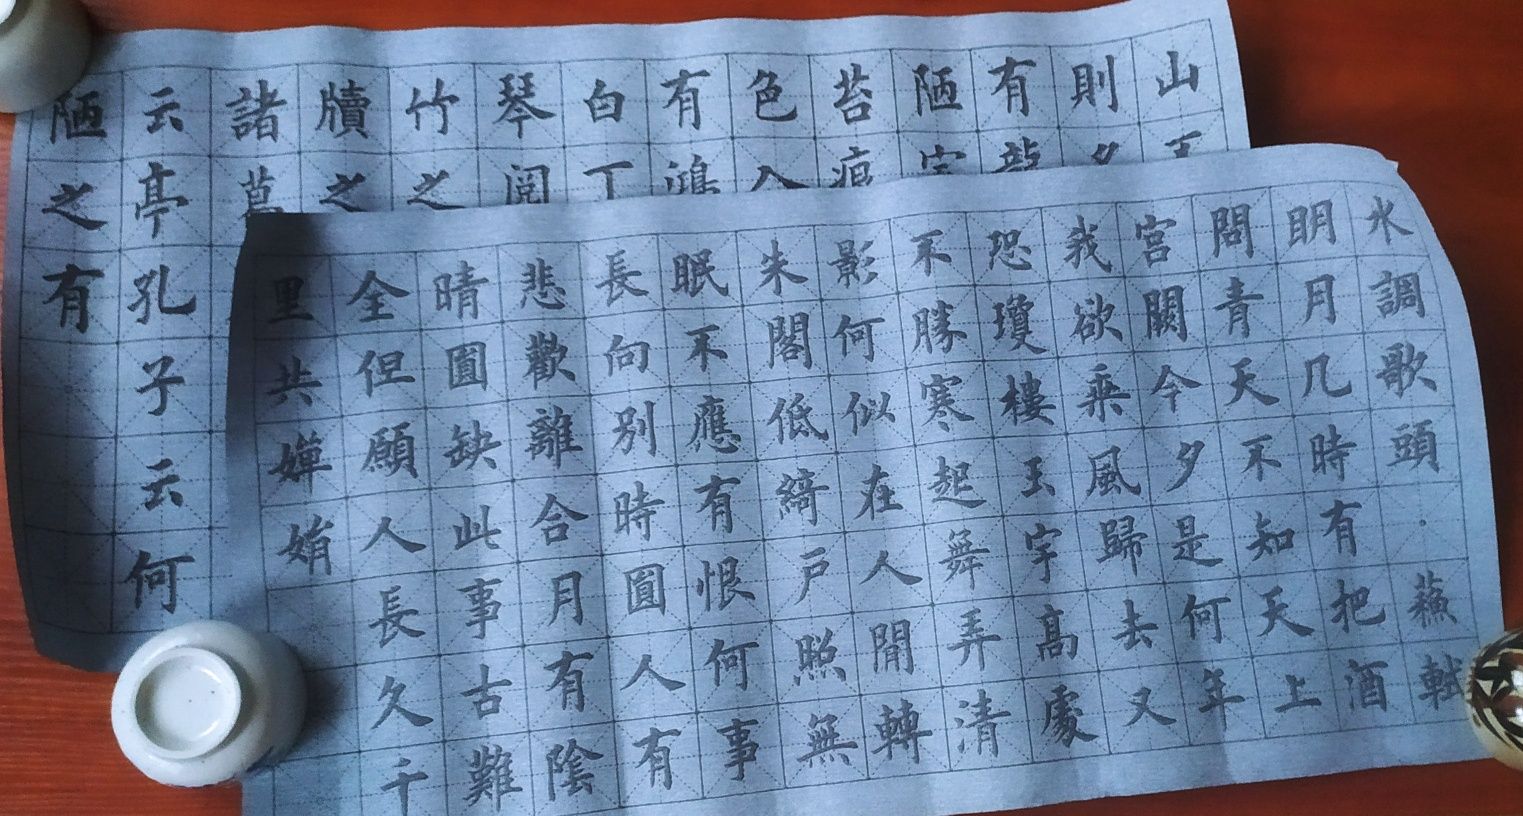 水調歌頭·蘓軾
明月几時有把酒
問青天不知天上
宮闕今夕是何年
我欲乘風歸去又
恐瓊樓玉宇高處
不勝寒起舞弄清
影何似在人間轉
朱閣低綺戶照無
眠不應有恨何事
長向別時圓人有
悲歡離合月有陰
晴圓缺此事古難
全但願人長久千
里共嬋娟
山
則
有龍
陋室
苔痕
色入
有鴻
白丁
琴閱
竹之
牘之
諸葛
云亭孔子云何
陋之有